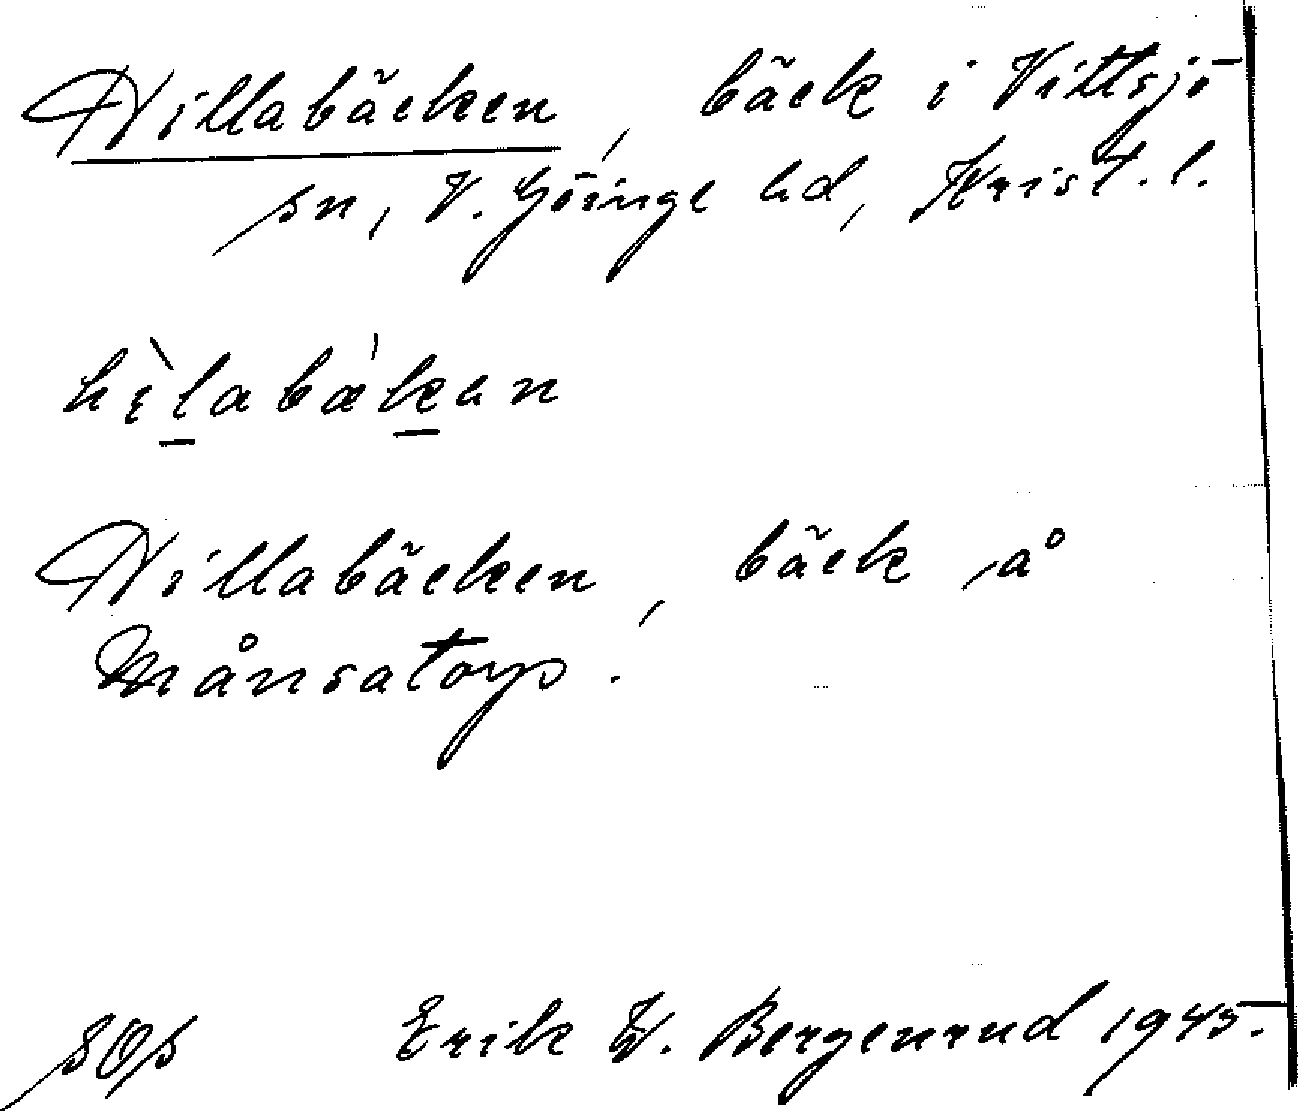 Hillabäcken, bäck i Vittsjö
sn, V. Göinge hd, Krist. l.
hìlabækan
Hillabäcken, bäck å
Månsatorp.
Erik W. Bergenrud 1945.